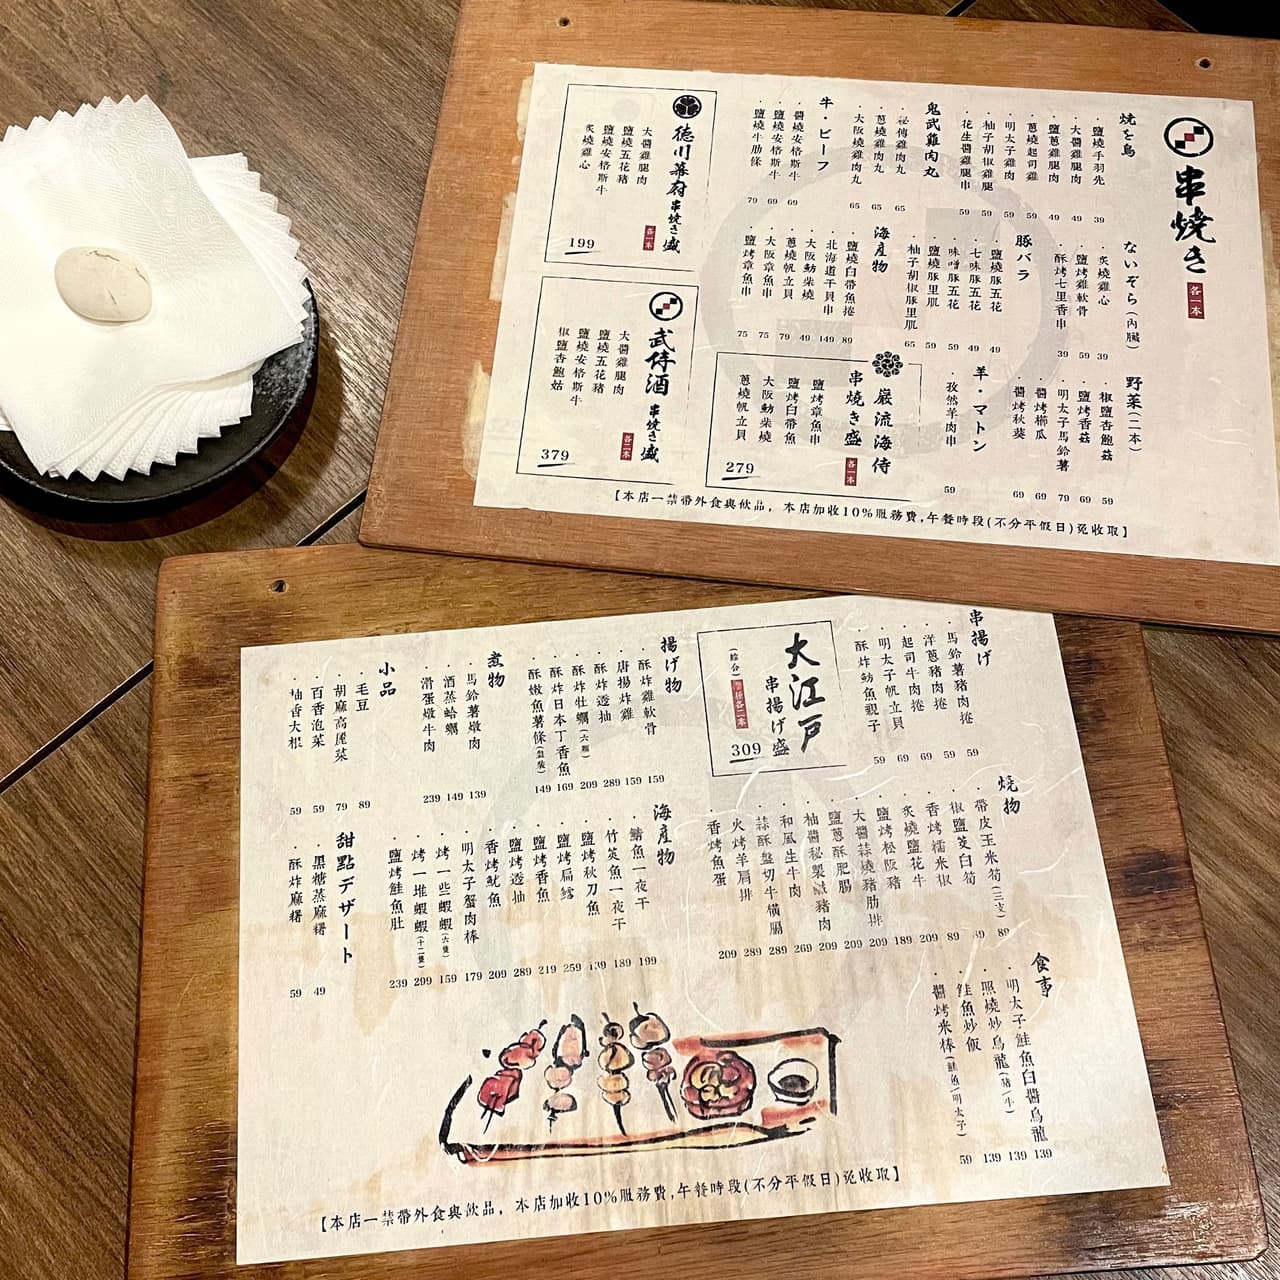 串燒き
各一本
燒き鳥
鹽燒手羽先
39
大醬雞腿肉
49
鹽蔥雞腿肉
49
蔥燒起司雞
59
明太子雞肉
59
柚子胡椒雞腿
59
花生醬雞腿串
59
鬼武雞肉丸
祕傳雞肉丸
65
蔥燒雞肉丸
65
大阪燒雞肉丸
65
牛・ビーフ
醬燒安格斯牛
69
鹽燒安格斯牛
69
鹽燒牛肋條
79
ないぞら(內臟)
炙燒雞心
39
鹽烤雞軟骨
59
酥烤七里香串
39
豚バラ
鹽燒豚五花
49
七味豚五花
49
味噌豚五花
59
鹽燒豚里肌
59
柚子胡椒豚里肌
65
海產物
鹽燒白帶魚捲
89
北海道干貝串
149
大阪魩柴燒
49
蔥燒帆立貝
79
大阪章魚串
75
鹽烤章魚串
75
野菜(二本)
椒鹽杏鮑菇
59
鹽烤香菇
69
明太子馬鈴薯
79
醬烤櫛瓜
69
醬烤秋葵
69
羊・マトン
孜然羊肉串
59
德川幕府
串燒き盛
各一本
大醬雞腿肉
鹽燒五花豬
鹽燒安格斯牛
炙燒雞心
199
武侍酒
串燒き盛
各二本
大醬雞腿肉
鹽燒五花豬
鹽燒安格斯牛
椒鹽杏鮑菇
379
巖流海侍
串燒き盛
各一本
鹽烤章魚串
鹽烤白帶魚
大阪魩柴燒
蔥燒帆立貝
279
【本店一禁帶外食與飲品，本店加收10%服務費,午餐時段(不分平假日)免收取】
串揚げ
馬鈴薯豬肉捲
59
洋蔥豬肉捲
59
起司牛肉捲
69
明太子帆立貝
69
酥炸魴魚親子
59
大江戶
串揚げ盛
(綜合)
309
揚げ物
酥炸雞軟骨
159
唐揚炸雞
159
酥炸透抽
289
酥炸牡蠣(六顆)
209
酥炸日本丁香魚
169
酥嫩魚薯條(盤裝)
149
煮物
馬鈴薯燉肉
139
酒蒸蛤蠣
149
滑蛋燉牛肉
239
小品
毛豆
89
胡麻高麗菜
79
百香泡菜
59
柚香大根
59
燒物
帶皮玉米筍(三支)
89
椒鹽茭白筍
香烤糯米椒
89
炙燒鹽花牛
209
鹽烤松阪豬
189
大醬蒜燒豬肋排
209
鹽蔥酥肥腸
209
柚醬秘製鹹豬肉
209
和風生牛肉
269
蒜酥盤切牛橫膈
289
火烤羊肩排
289
香烤魚蛋
209
海產物
鯖魚一夜干
199
竹莢魚一夜干
189
鹽烤秋刀魚
鹽烤扁鱈
259
鹽烤香魚
219
鹽烤透抽
289
香烤魷魚
209
明太子蟹肉棒
179
烤一些蝦蝦(六隻)
159
烤一堆蝦蝦(十二隻)
299
鹽烤鮭魚肚
239
甜點デザート
黑糖蒸麻糬
49
酥炸麻糬
59
食事
明太子鮭魚白醬烏龍
139
照燒炒烏龍(豬/牛)
139
鮭魚炒飯
139
醬烤米棒(鮭魚/明太子)
59
【本店一禁帶外食與飲品，本店加收10%服務費,午餐時段(不分平假日)免收取】